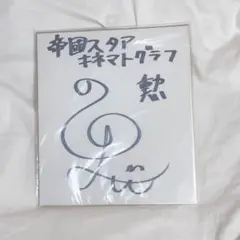 帝國スタア
キネマトグラフ
勲